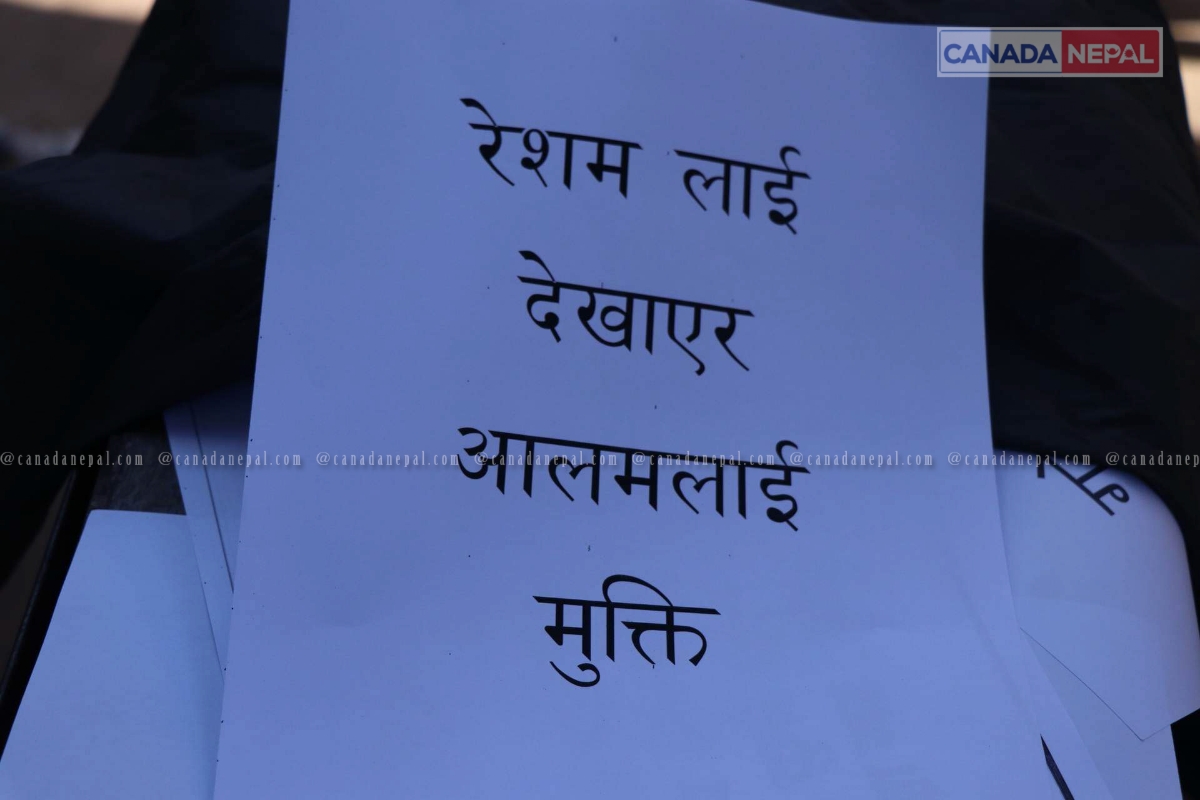 CANADA NEPAL
रेशम लाई
देखाएर
आलमलाई
मुक्ति
@canadanepal.com @canadanepal.com @canadanepal.com @canadanepal.com @canadanepal.com @canadanepal.com @canadanepal.com